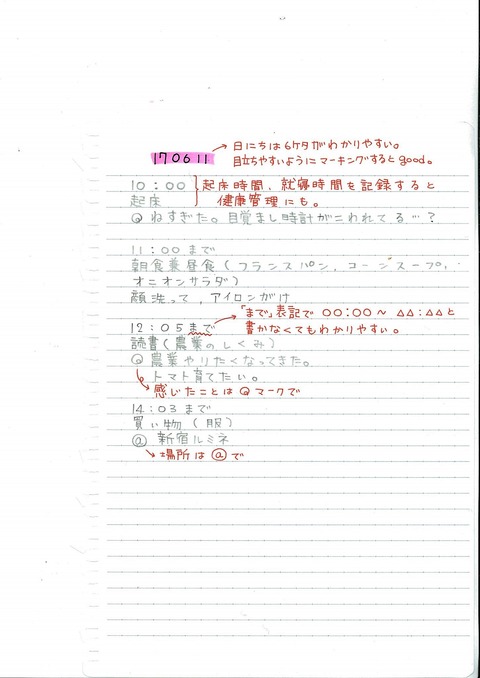 170611
→日にちは6ケタがわかりやすい。
目立ちやすいようにマーキングするとgood。
10:00
起床
起床時間、就寝時間を記録すると
健康管理にも。
Q ねすぎた。目覚まし時計がこわれてる…?
11:00まで
朝食兼昼食(フランスパン、コーンスープ、
オニオンサラダ)
顔洗って、アイロンがけ
「まで」表記で 00:00～△△:△△と
書かなくてもわかりやすい。
12:05まで
読書(農業のしくみ)
Q 農業やりたくなってきた。
トマト育てたい。
→感じたことはQマークで
14:03まで
買い物(服)
@ 新宿ルミネ
→場所は@で